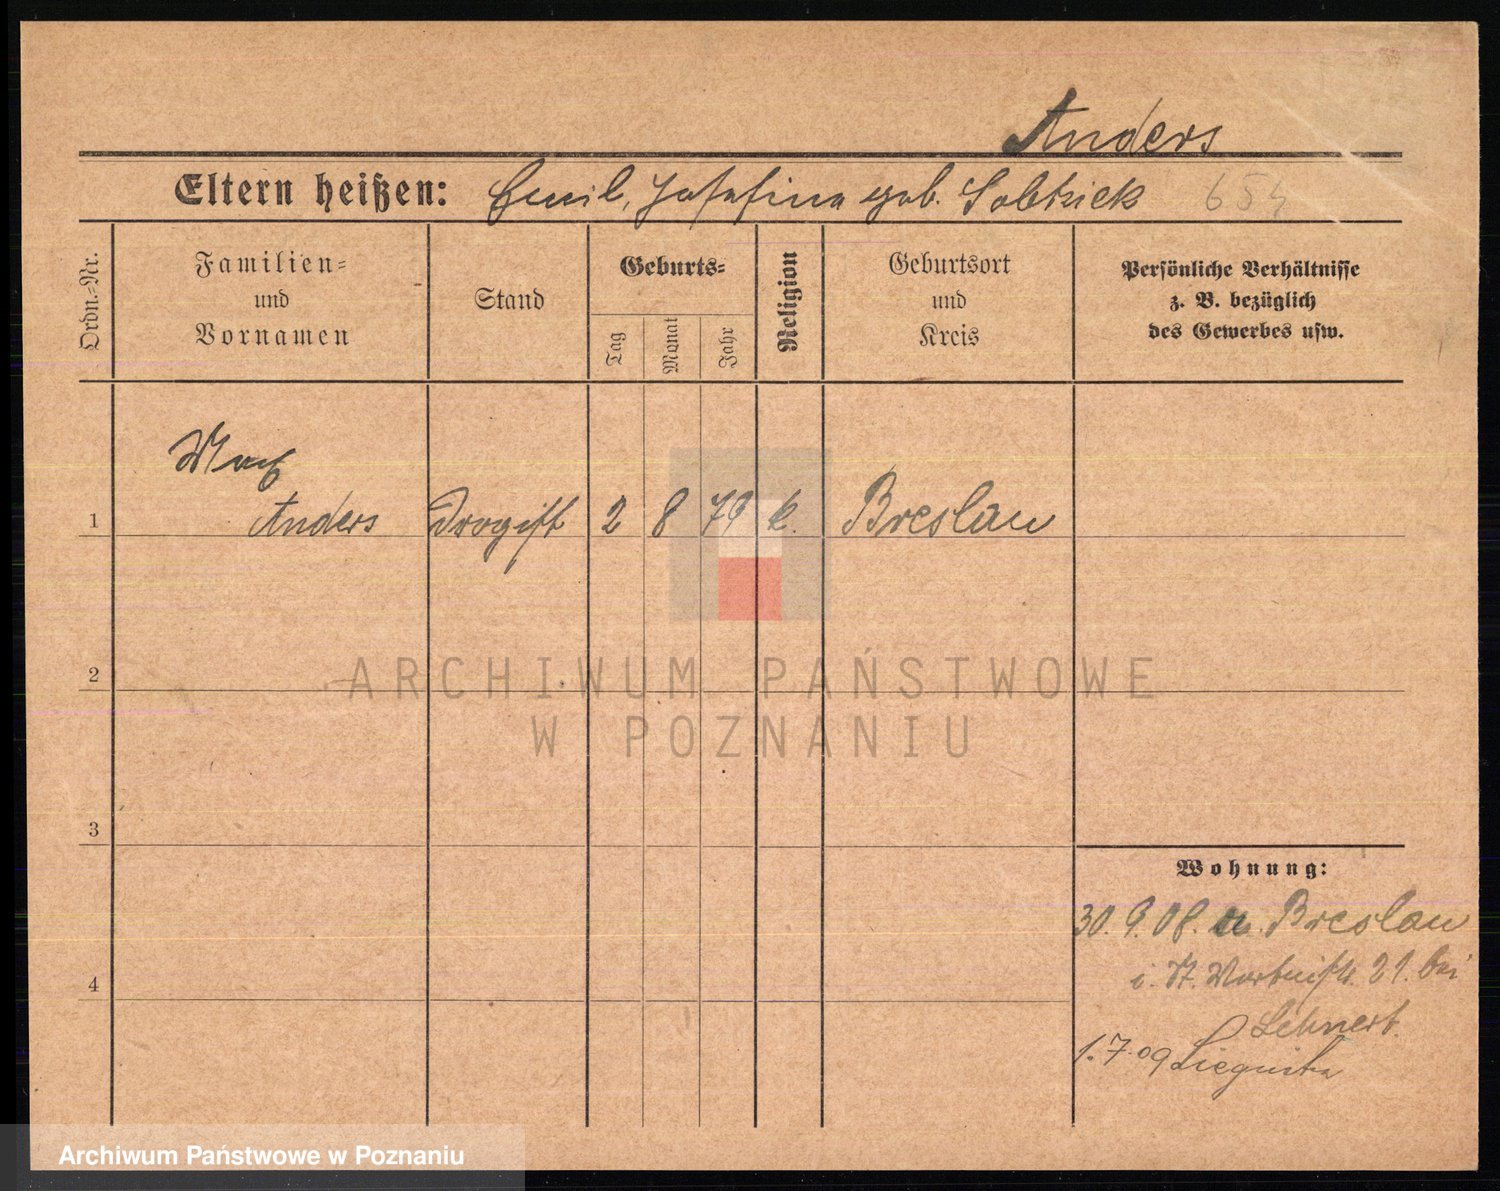 Anders
Eltern heißen: Emil, Josefina geb. Sobtziek 654
Ordn.=Nr.
Familien=
und
Vornamen
Stand
Geburts=
Tag
Monat
Jahr
Religion
Geburtsort
und
Kreis
Persönliche Verhältnisse
z. B. bezüglich
des Gewerbes usw.
Max
1 Anders Drogist 2 8 79 k. Breslau
2
3
4
Wohnung:
30. 9. 08. a. Breslau
i. St. 21. bei
Lehnert.
1. 7. 09 Liegnitz
ARCHIWUM PAŃSTWOWE
W POZNANIU
Archiwum Państwowe w Poznaniu